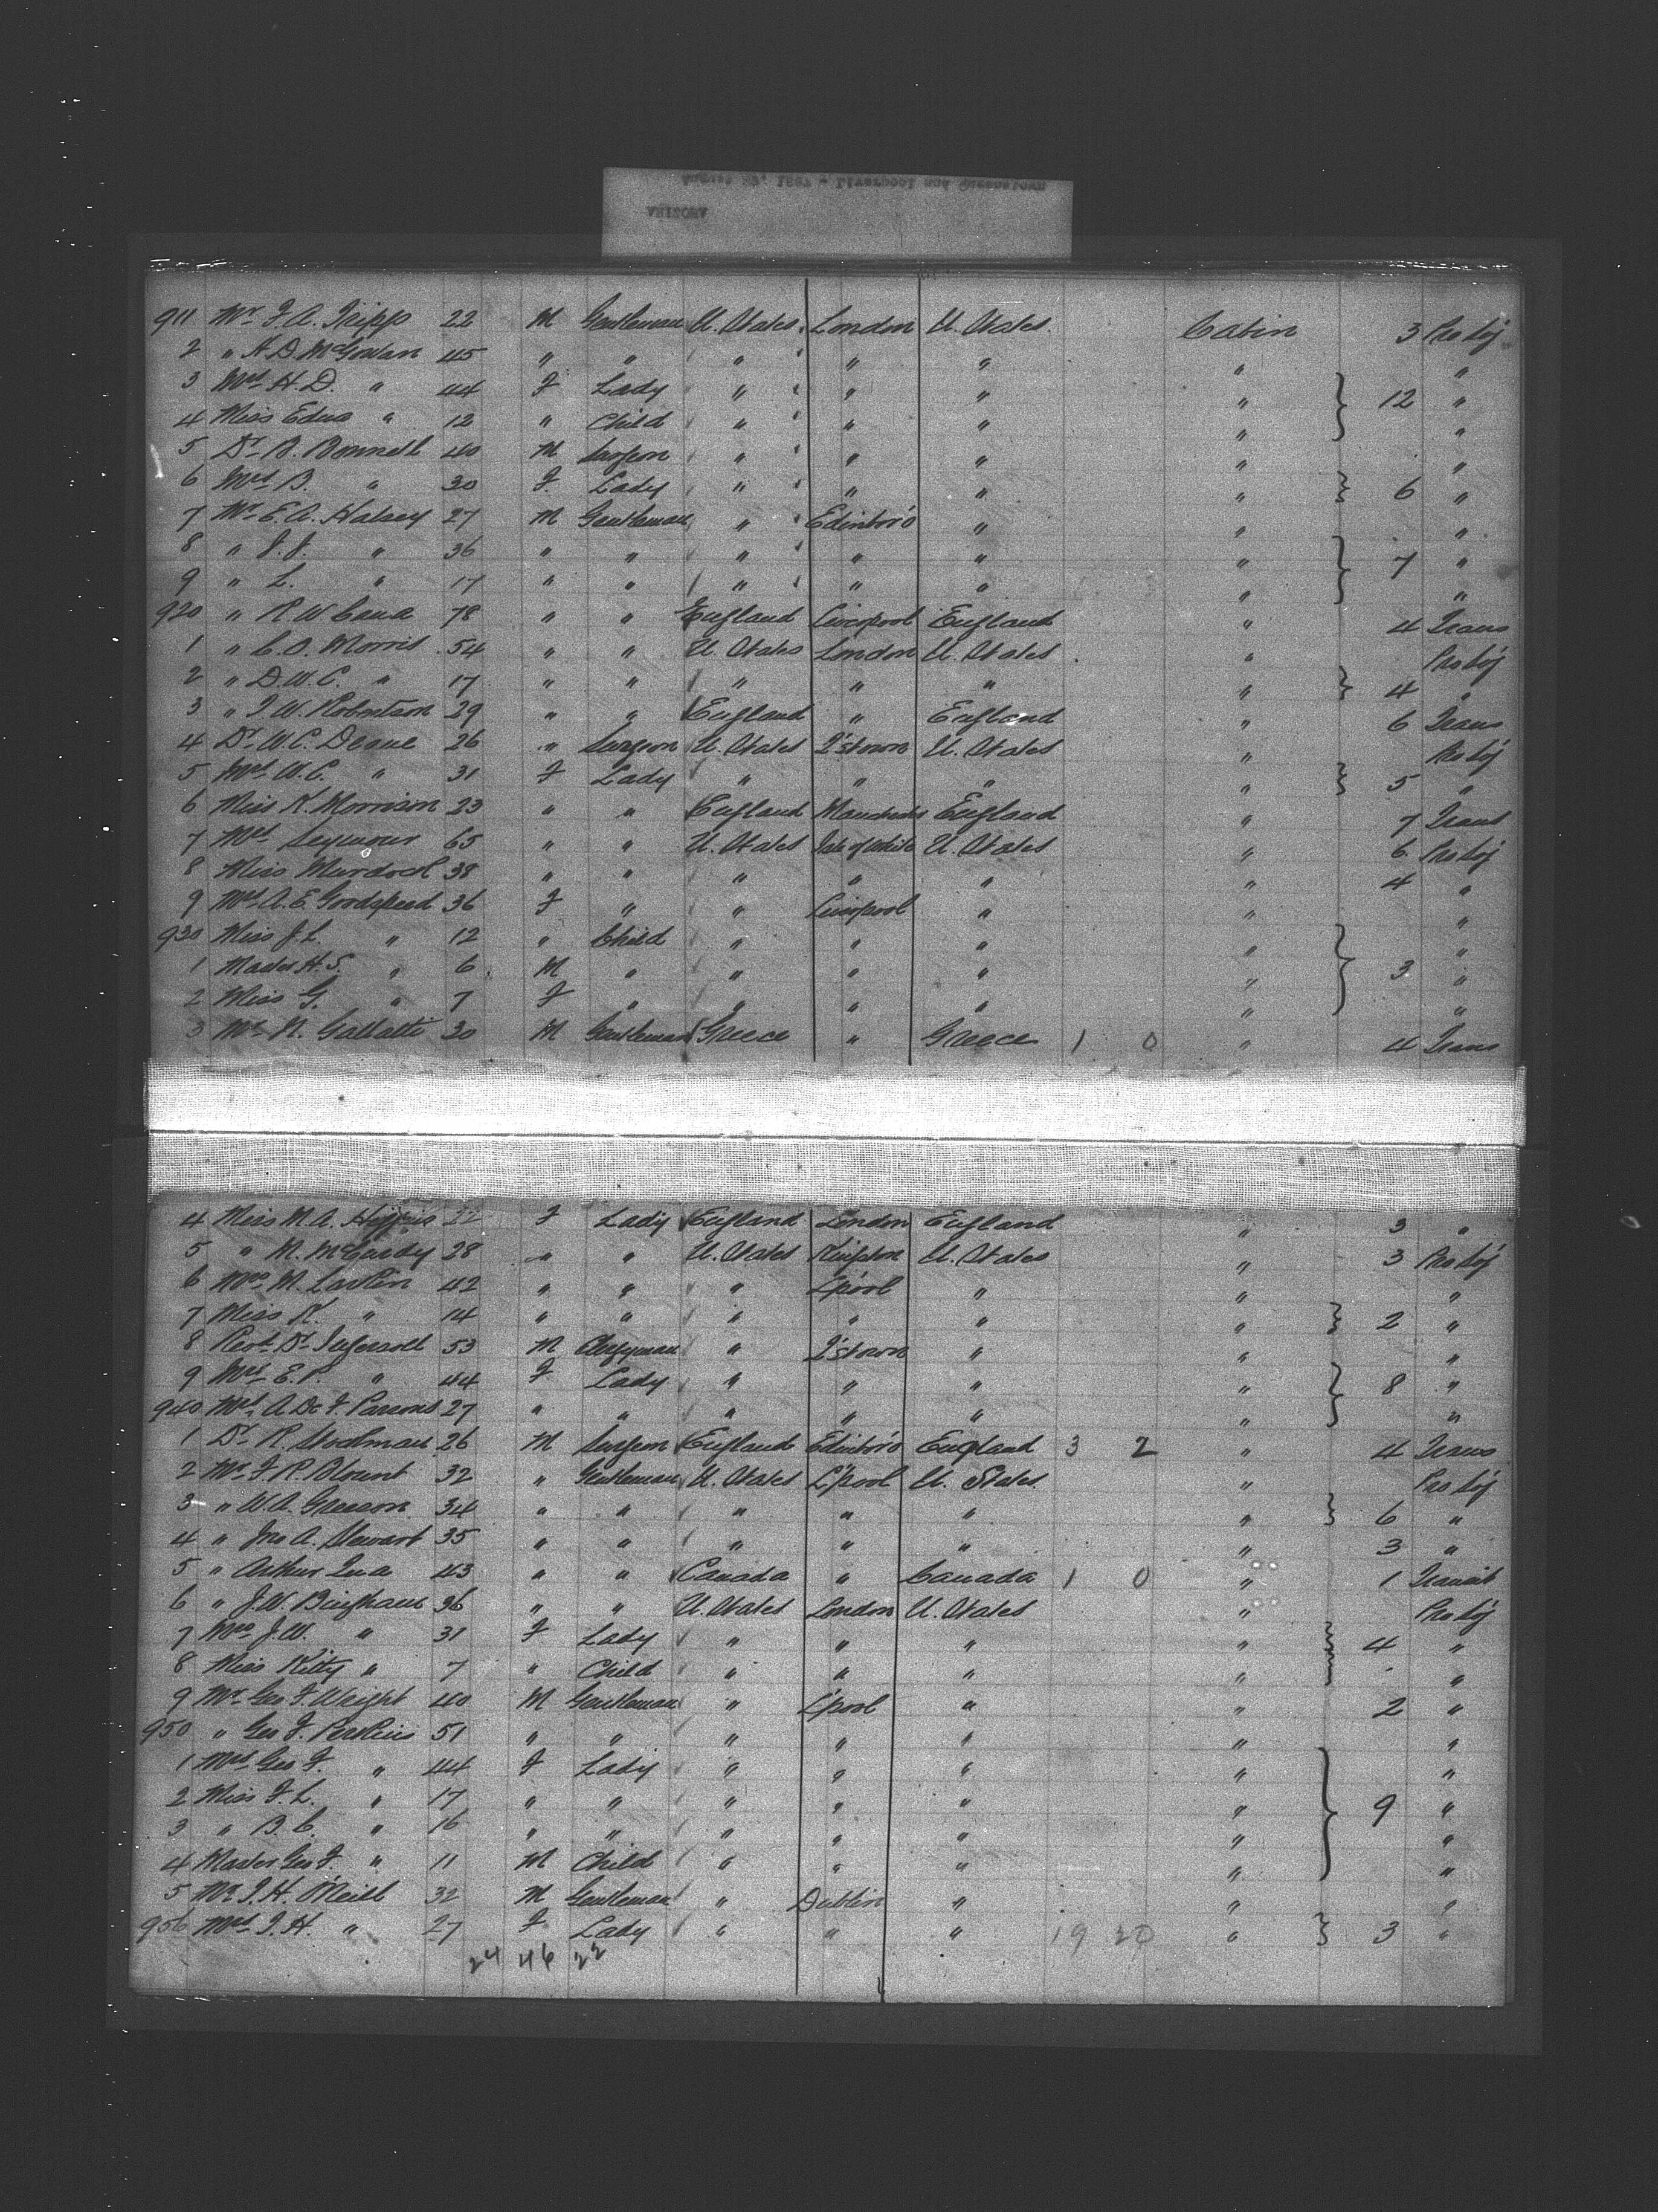 August 27, 1887 - Liverpool and Queenstown
ARIZONA
911 Mr F. A. Tripp 22 M Gentleman U. States London U. States Cabin 3 Pro Soj
2 " H D. McGowan 45 " " " " " " "
3 Mrs H. D. " 44 F Lady " " " " } 12 "
4 Miss Edna " 12 " Child " " " " "
5 Dr B. Bonnell 40 M Surgeon " " " " "
6 Mrs B. " 30 F Lady " " " " } 6 "
7 Mr E. A. Halsey 27 M Gentleman " Edinboro " " "
8 " J. J. " 36 " " " " " " } 7 "
9 " L. " 17 " " " " " " "
920 " R W 78 " " England Liverpool England " 4 Trans
1 " C. O. Morris 54 " " U. States London U. States " Pro Soj
2 " D. W. C. " 17 " " " " " " } 4 "
3 " J W. Robertson 29 " " England " England " 6 Trans
4 Dr W. C. Deane 26 " Surgeon U. States Q'stown U. States " Pro Soj
5 Mrs W. C. " 31 F Lady " " " " } 5 "
6 Miss K. Morrison 23 " " England England " 7 Trans
7 Mrs Seymour 65 " " U. States Isle of White U. States " 6 Pro Soj
8 Miss Murdock 38 " " " " " " 4 "
9 Mrs A. E. Goodspeed 36 F " " Liverpool " " "
930 Miss J. L. " 12 " Child " " " " "
1 Master H. S. " 6 M " " " " " } 3 "
2 Miss G. " 7 F " " " " " "
3 Mr N. Gallatti 30 M Gentleman Greece " Greece 1 0 " 4 Trans
4 Miss M. A. 22 F Lady England London England " 3 "
5 " M. McCurdy 28 " " U. States Kingston U. States " 3 Pro Soj
6 Mrs M. Larkin 42 " " " L'pool " " "
7 Miss K. " 14 " " " " " " } 2 "
8 Revd Dr Ingersoll 53 M Clergyman " Q'stown " " "
9 Mrs E. P. " 44 F Lady " " " " } 8 "
940 Mrs A. De F. Parsons 27 " " " " " " "
1 Dr R. Stodman 26 M Surgeon England Edinboro England 3 2 " 4 Trans
2 Mr F. R. Blount 32 " Gentleman U. States L'pool U. States " Pro Soj
3 " W. A. Greeson 34 " " " " " " } 6 "
4 " Jno A. Stewart 35 " " " " " " 3 "
5 " Arthur 43 " " Canada " Canada 1 0 " 1 Transit
6 " J. W. Bingham 36 " " U. States London U. States " Pro Soj
7 Mrs J. W. " 31 F Lady " " " " } 4 "
8 Miss Kitty " 7 " Child " " " " "
9 Mr Geo F Wright 40 M Gentleman " L'pool " " 2 "
950 " Geo F. Perkins 51 " " " " " " "
1 Mrs Geo F. " 44 F Lady " " " " "
2 Miss F. L. " 17 " " " " " " } 9 "
3 " B. C. " 16 " " " " " " "
4 Master Geo F. " 11 M Child " " " " "
5 Mr J. H. O'Neill 32 M Gentleman " Dublin " " "
956 Mrs J. H. " 27 F Lady " " " 19 20 " } 3 "
24 46 22